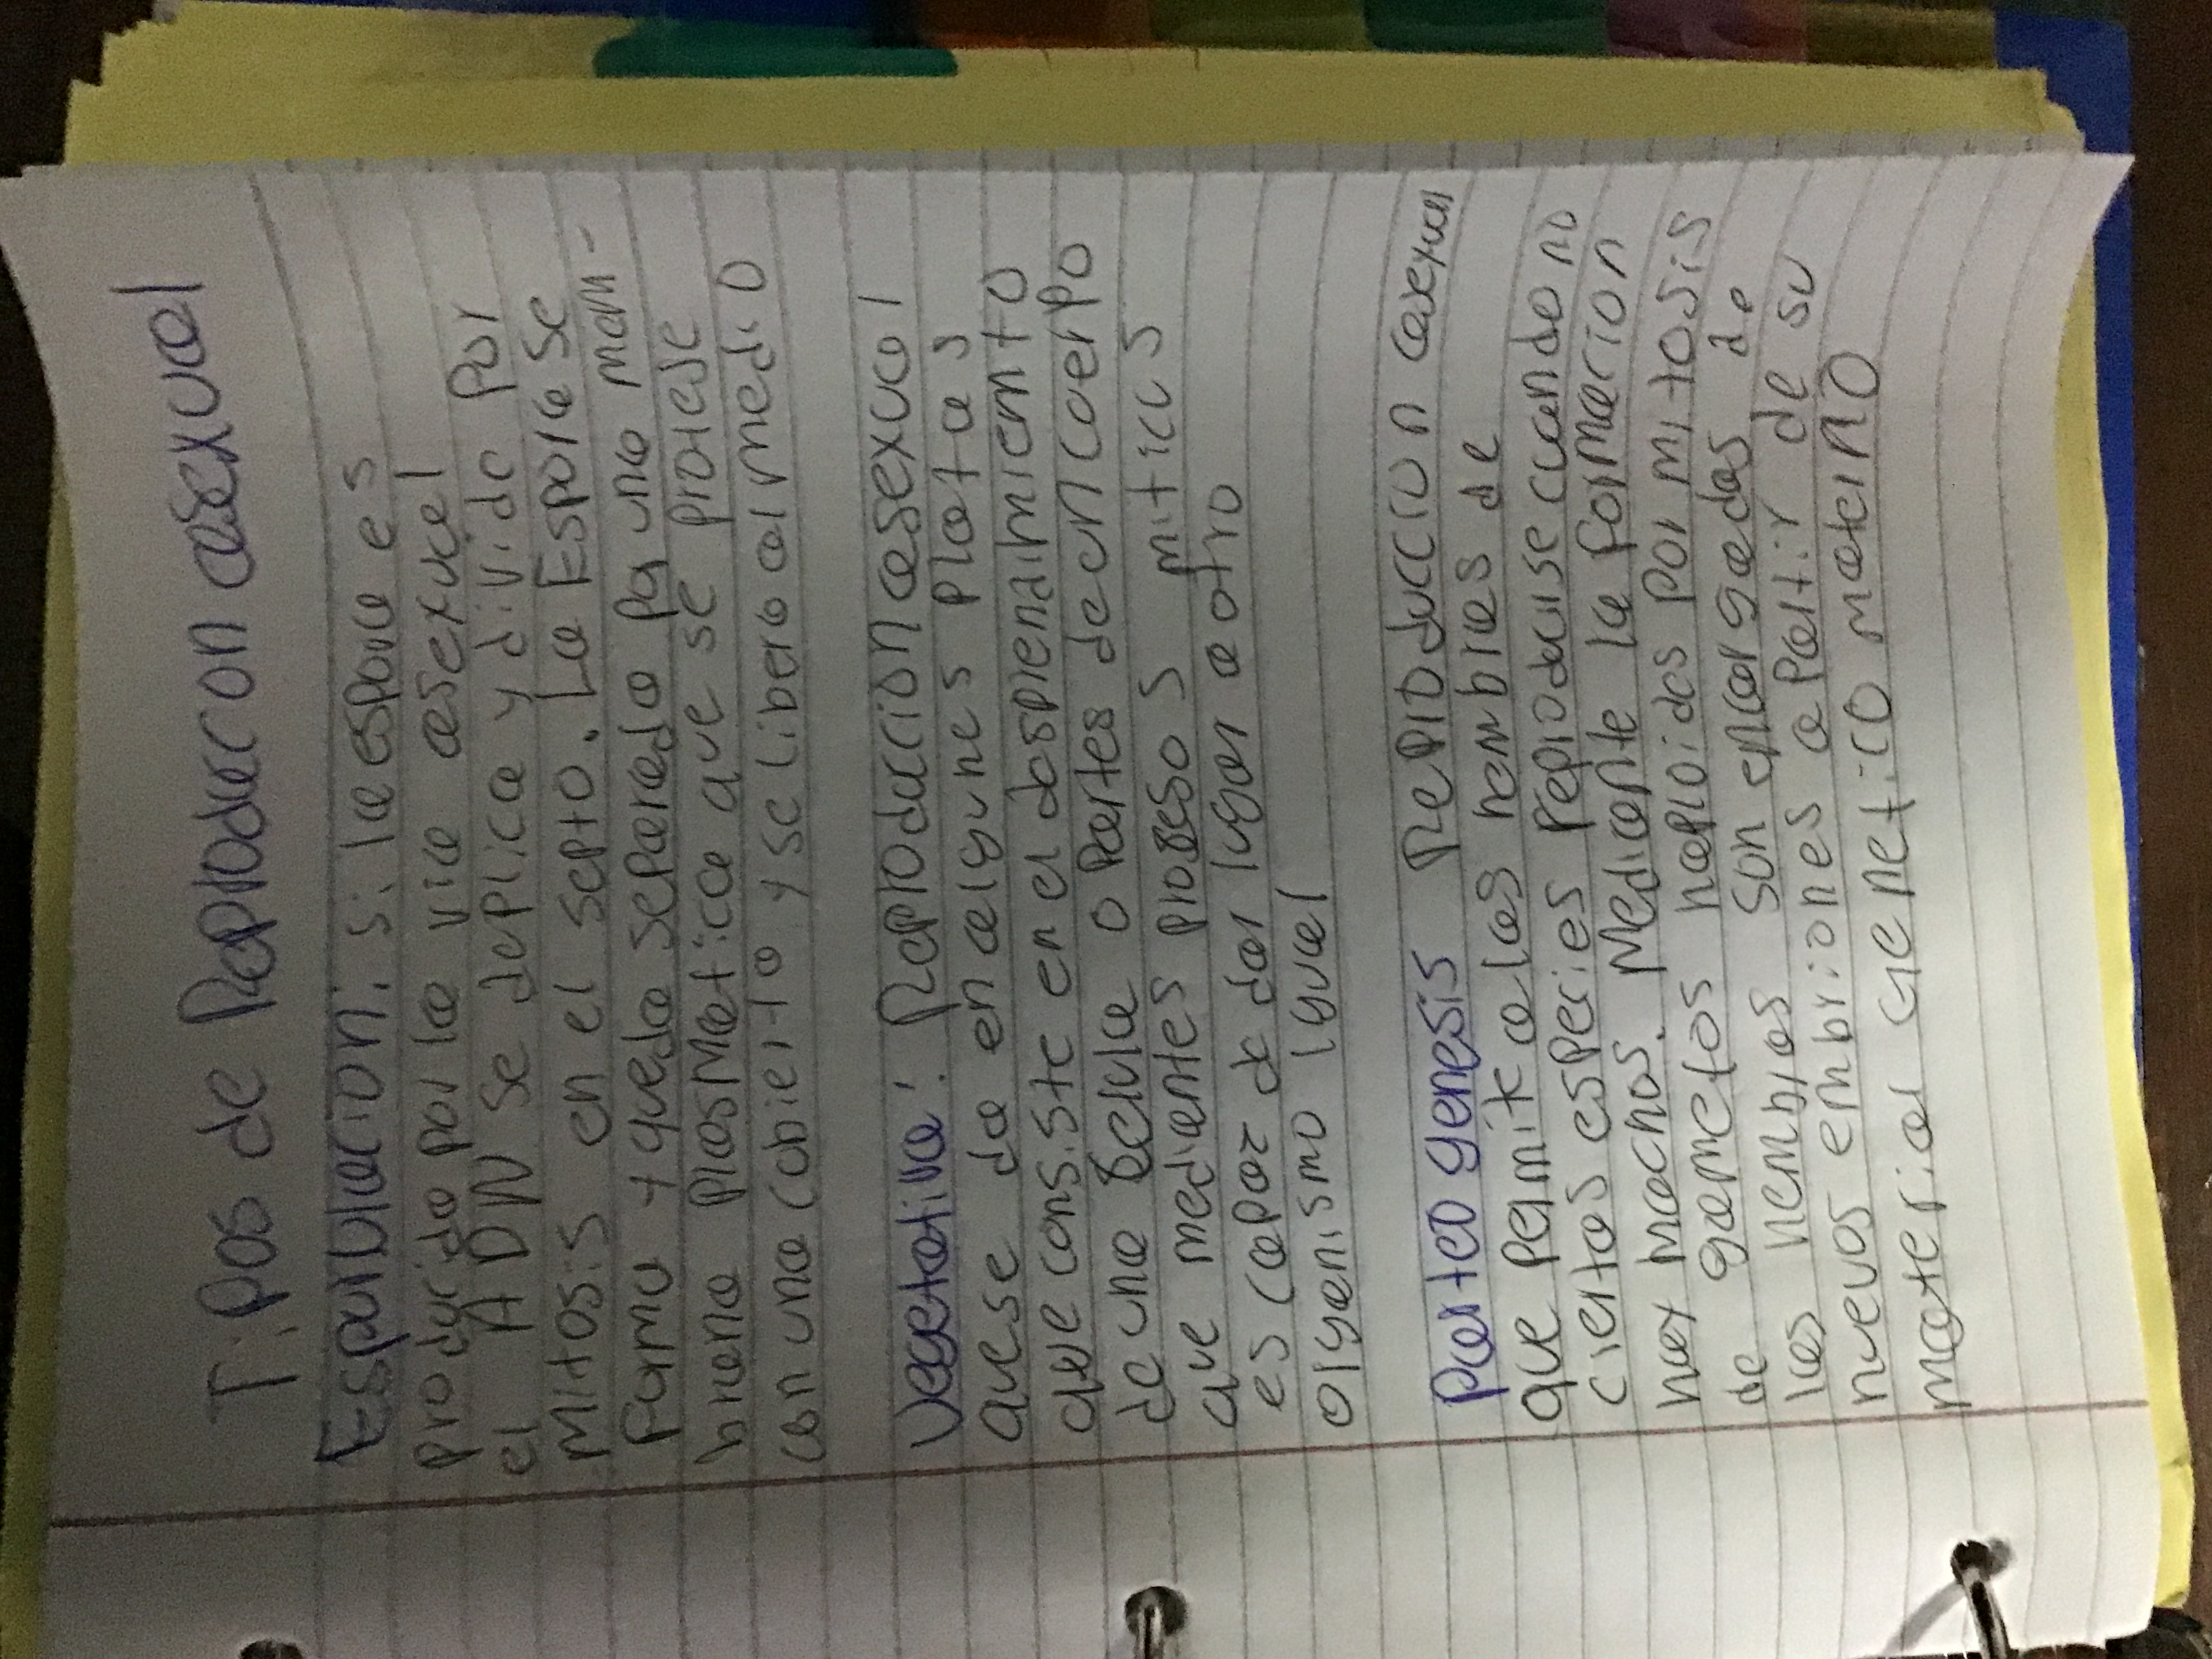 Tipos de Reproduccon asexual
Esporulacion: si la espora es
producida por la via asexual
el ADN se deplica y divide por
Mitosis en el septo. La Espora se
forma y queda separada por una mem-
brana plasmatica que se proiese
con una cobierta y se libera al medio
Vegetativa: Reproduccion asexual
que se da en algunes platas
que consiste en el desprendimiento
de una celula o Partes de un cuerpo
que mediantes proseso s miticos
es capaz de dar lugar a otro
organismo igual
parteo genesis Reproduccion asexual
que permite a las hembras de
ciertas especies reproducirse cuando no
hay machos. Mediante la formacion
de gametos haploidas por mitosis
las hembras son encargadas de
nuevos embriones a partir de su
material genetico materno